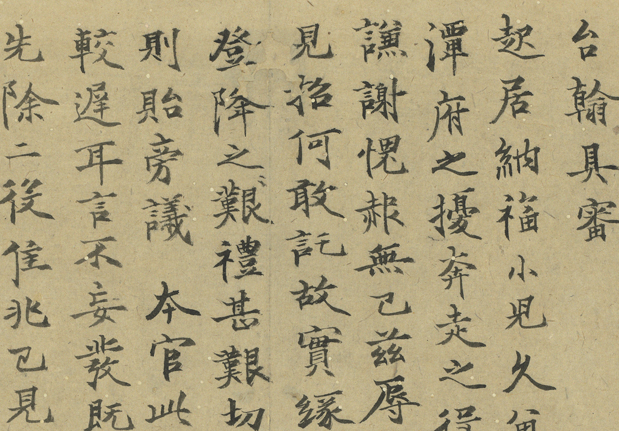 台翰具審
起居納福小児久留
潭府之擾奔走之役
謙謝愧赧無已茲辱
見招何敢託故實緣
登降之艱禮甚艱切
則貽旁議本官此
較遲耳言不妄發既
先除二後佳兆已見